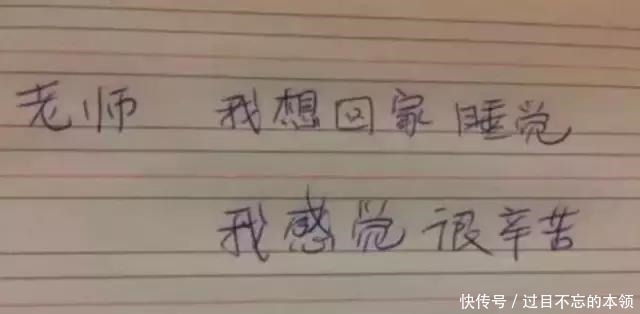 老师 我想回家睡觉
我感觉很辛苦
快传号/过目不忘的本领